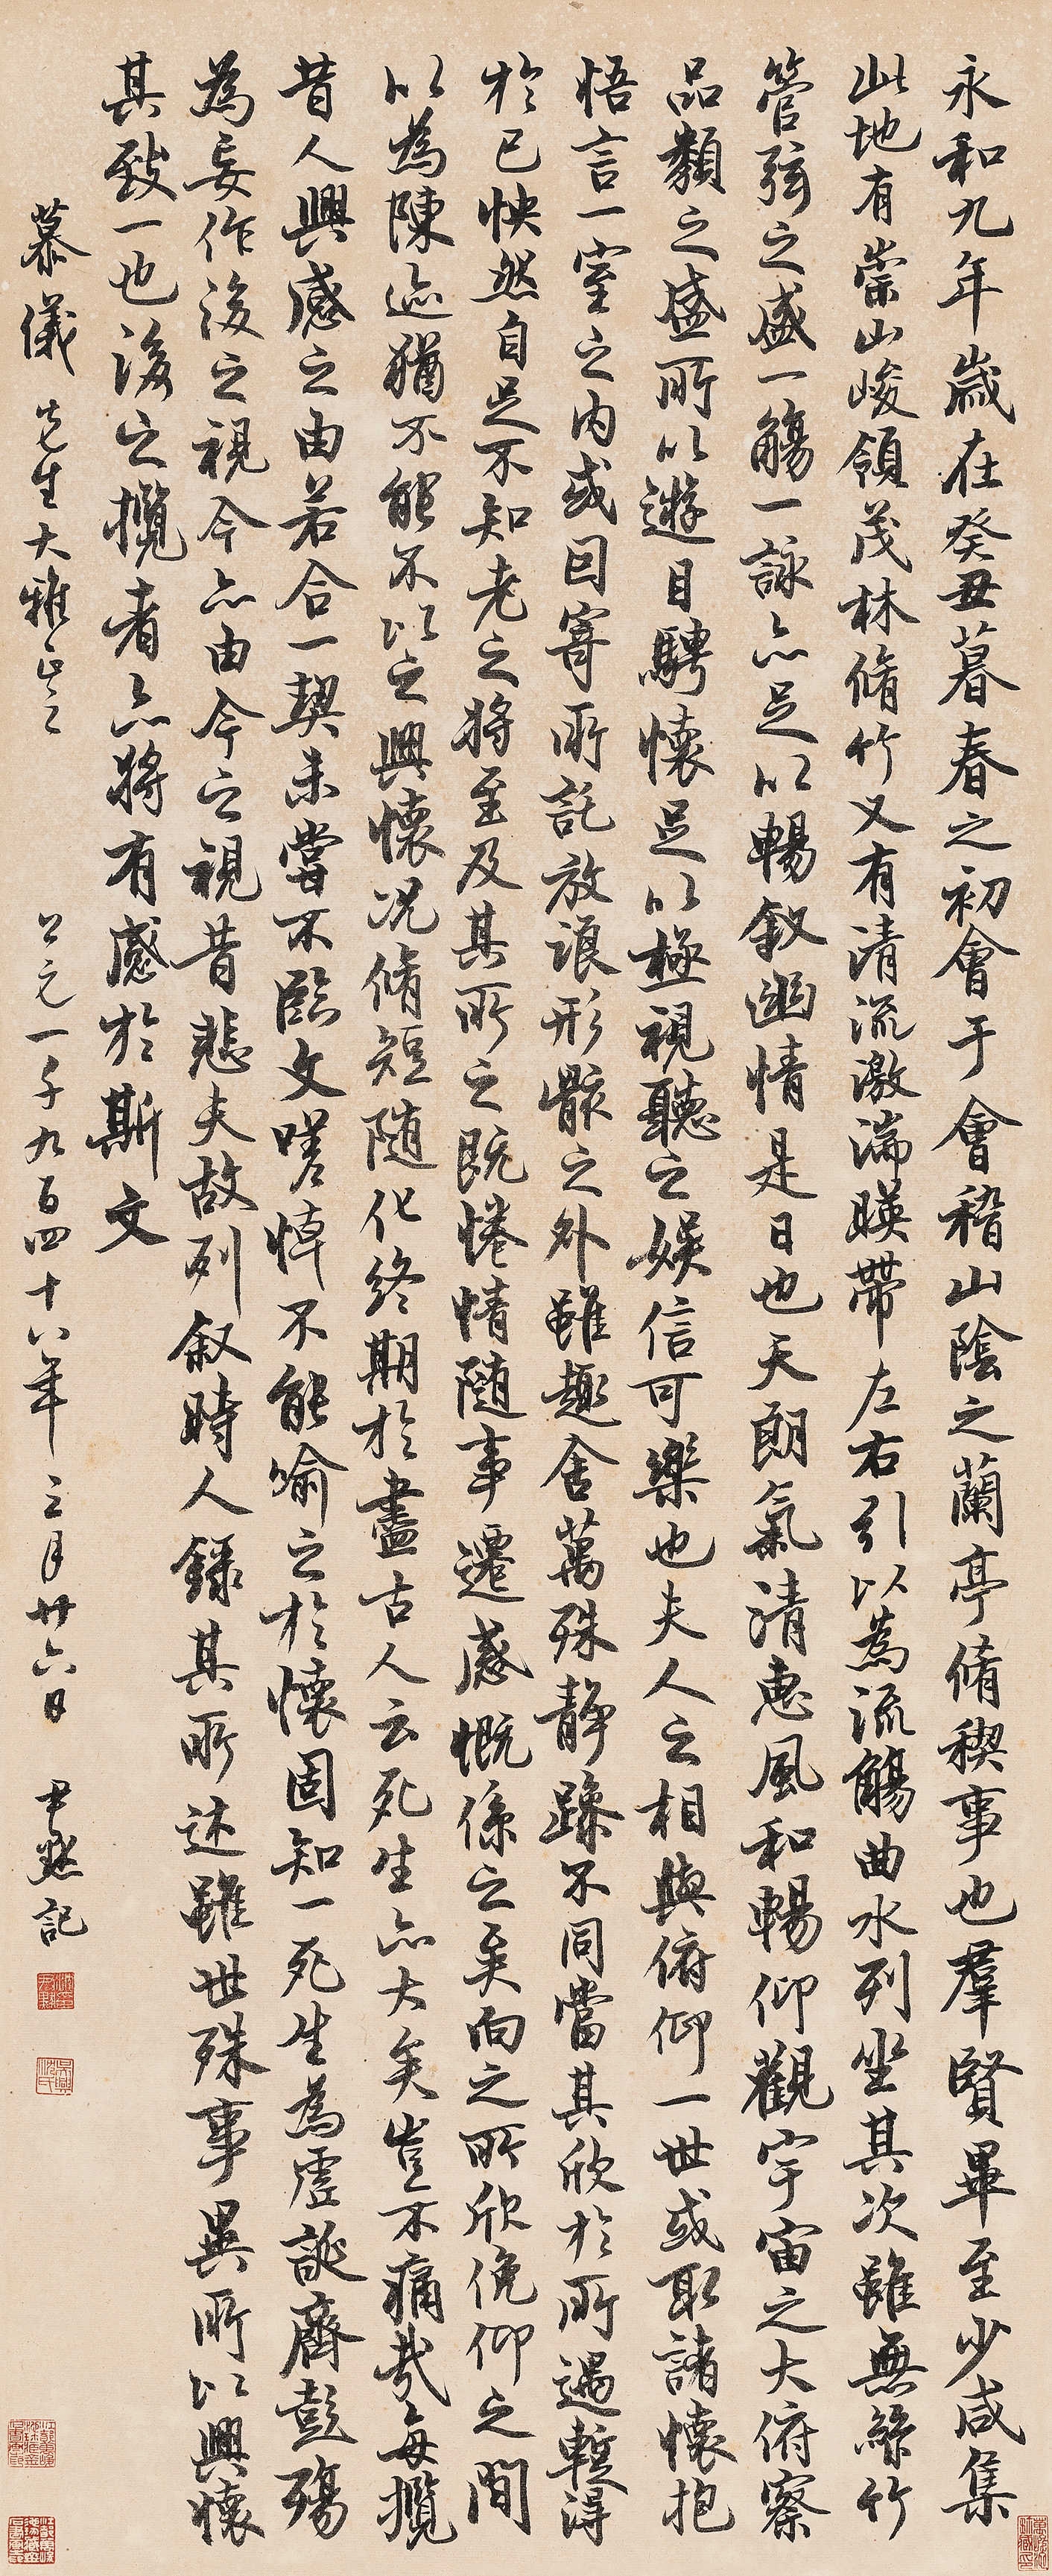 永和九年歲在癸丑暮春之初會于會稽山陰之蘭亭脩稧事也羣賢畢至少咸集
此地有崇山峻領茂林脩竹又有清流激湍暎帶左右引以為流觴曲水列坐其次雖無絲竹
管弦之盛一觴一詠亦足以暢敘幽情是日也天朗氣清惠風和暢仰觀宇宙之大俯察
品類之盛所以遊目騁懷足以極視聽之娛信可樂也夫人之相與俯仰一世或取諸懷抱
悟言一室之內或因寄所託放浪形骸之外雖趣舍萬殊靜躁不同當其欣於所遇蹔得
於己怏然自足不知老之將至及其所之既惓情隨事遷感慨係之矣向之所欣俛仰之間
以為陳迹猶不能不以之興懷況脩短隨化終期於盡古人云死生亦大矣豈不痛哉每攬
昔人興感之由若合一契未嘗不臨文嗟悼不能喻之於懷固知一死生為虛誕齊彭殤
為妄作後之視今亦由今之視昔悲夫故列敘時人錄其所述雖世殊事異所以興懷
其致一也後之攬者亦將有感於斯文
慕儀先生大雅正之 公元一千九百四十八年三月廿六日 尹默記